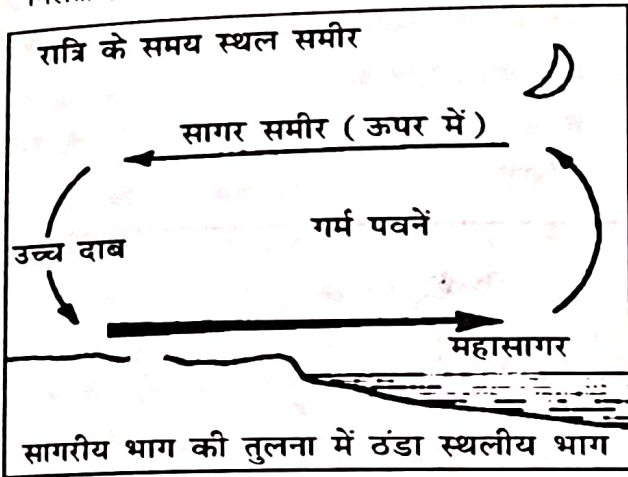 रात्रि के समय स्थल समीर
सागर समीर ( ऊपर में )
गर्म पवनें
उच्च दाब
महासागर
सागरीय भाग की तुलना में ठंडा स्थलीय भाग